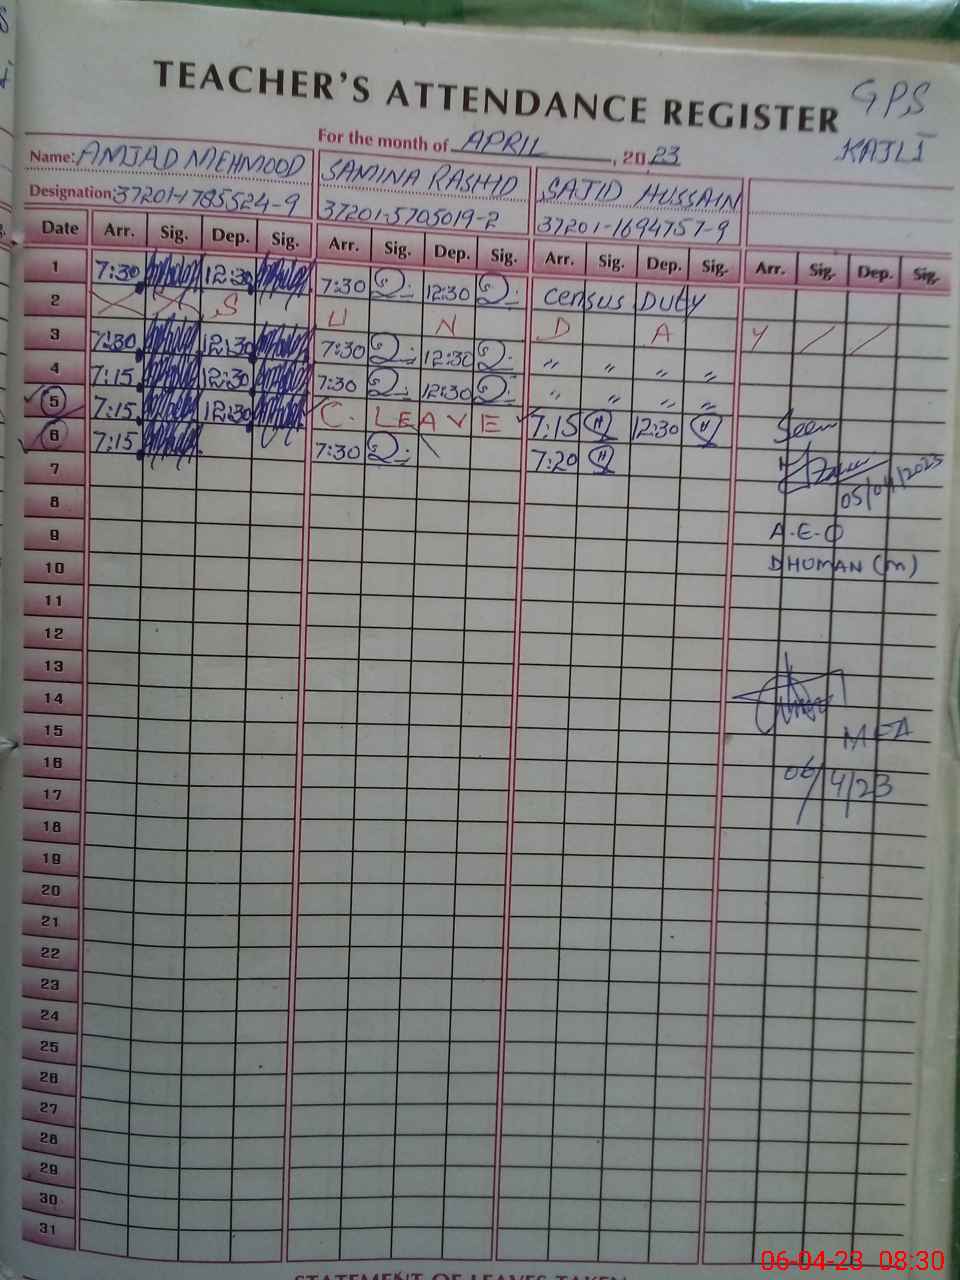 TEACHER'S ATTENDANCE REGISTER
GPS
KAJLI
For the month of APRIL, 2023
Name: AMJAD MEHMOOD SAMINA RASHID SAJID HUSSAIN
Designation: 37201-1785524-9 37201-5705019-2 37201-1694757-9
Date Arr. Sig. Dep. Sig. Arr. Sig. Dep. Sig. Arr. Sig. Dep. Sig. Arr. Sig. Dep. Sig.
1 7:30 12:30 7:30 12:30 Census Duty
2 S U N D A Y
3 7:30 12:30 7:30 12:30 " " " "
4 7:15 12:30 7:30 12:30 " " " "
5 7:15 12:30 C. LEAVE 7:15 12:30 Seen
6 7:15 7:30 7:20
05/04/2023
7
8
9 A.E.O
10 DHUMAN (m)
11
12
13
14
15 MEA
16
17 06/4/23
18
19
20
21
22
23
24
25
26
27
28
29
30
31
STATEMENT OF LEAVES TAKEN
06-04-23 08:30